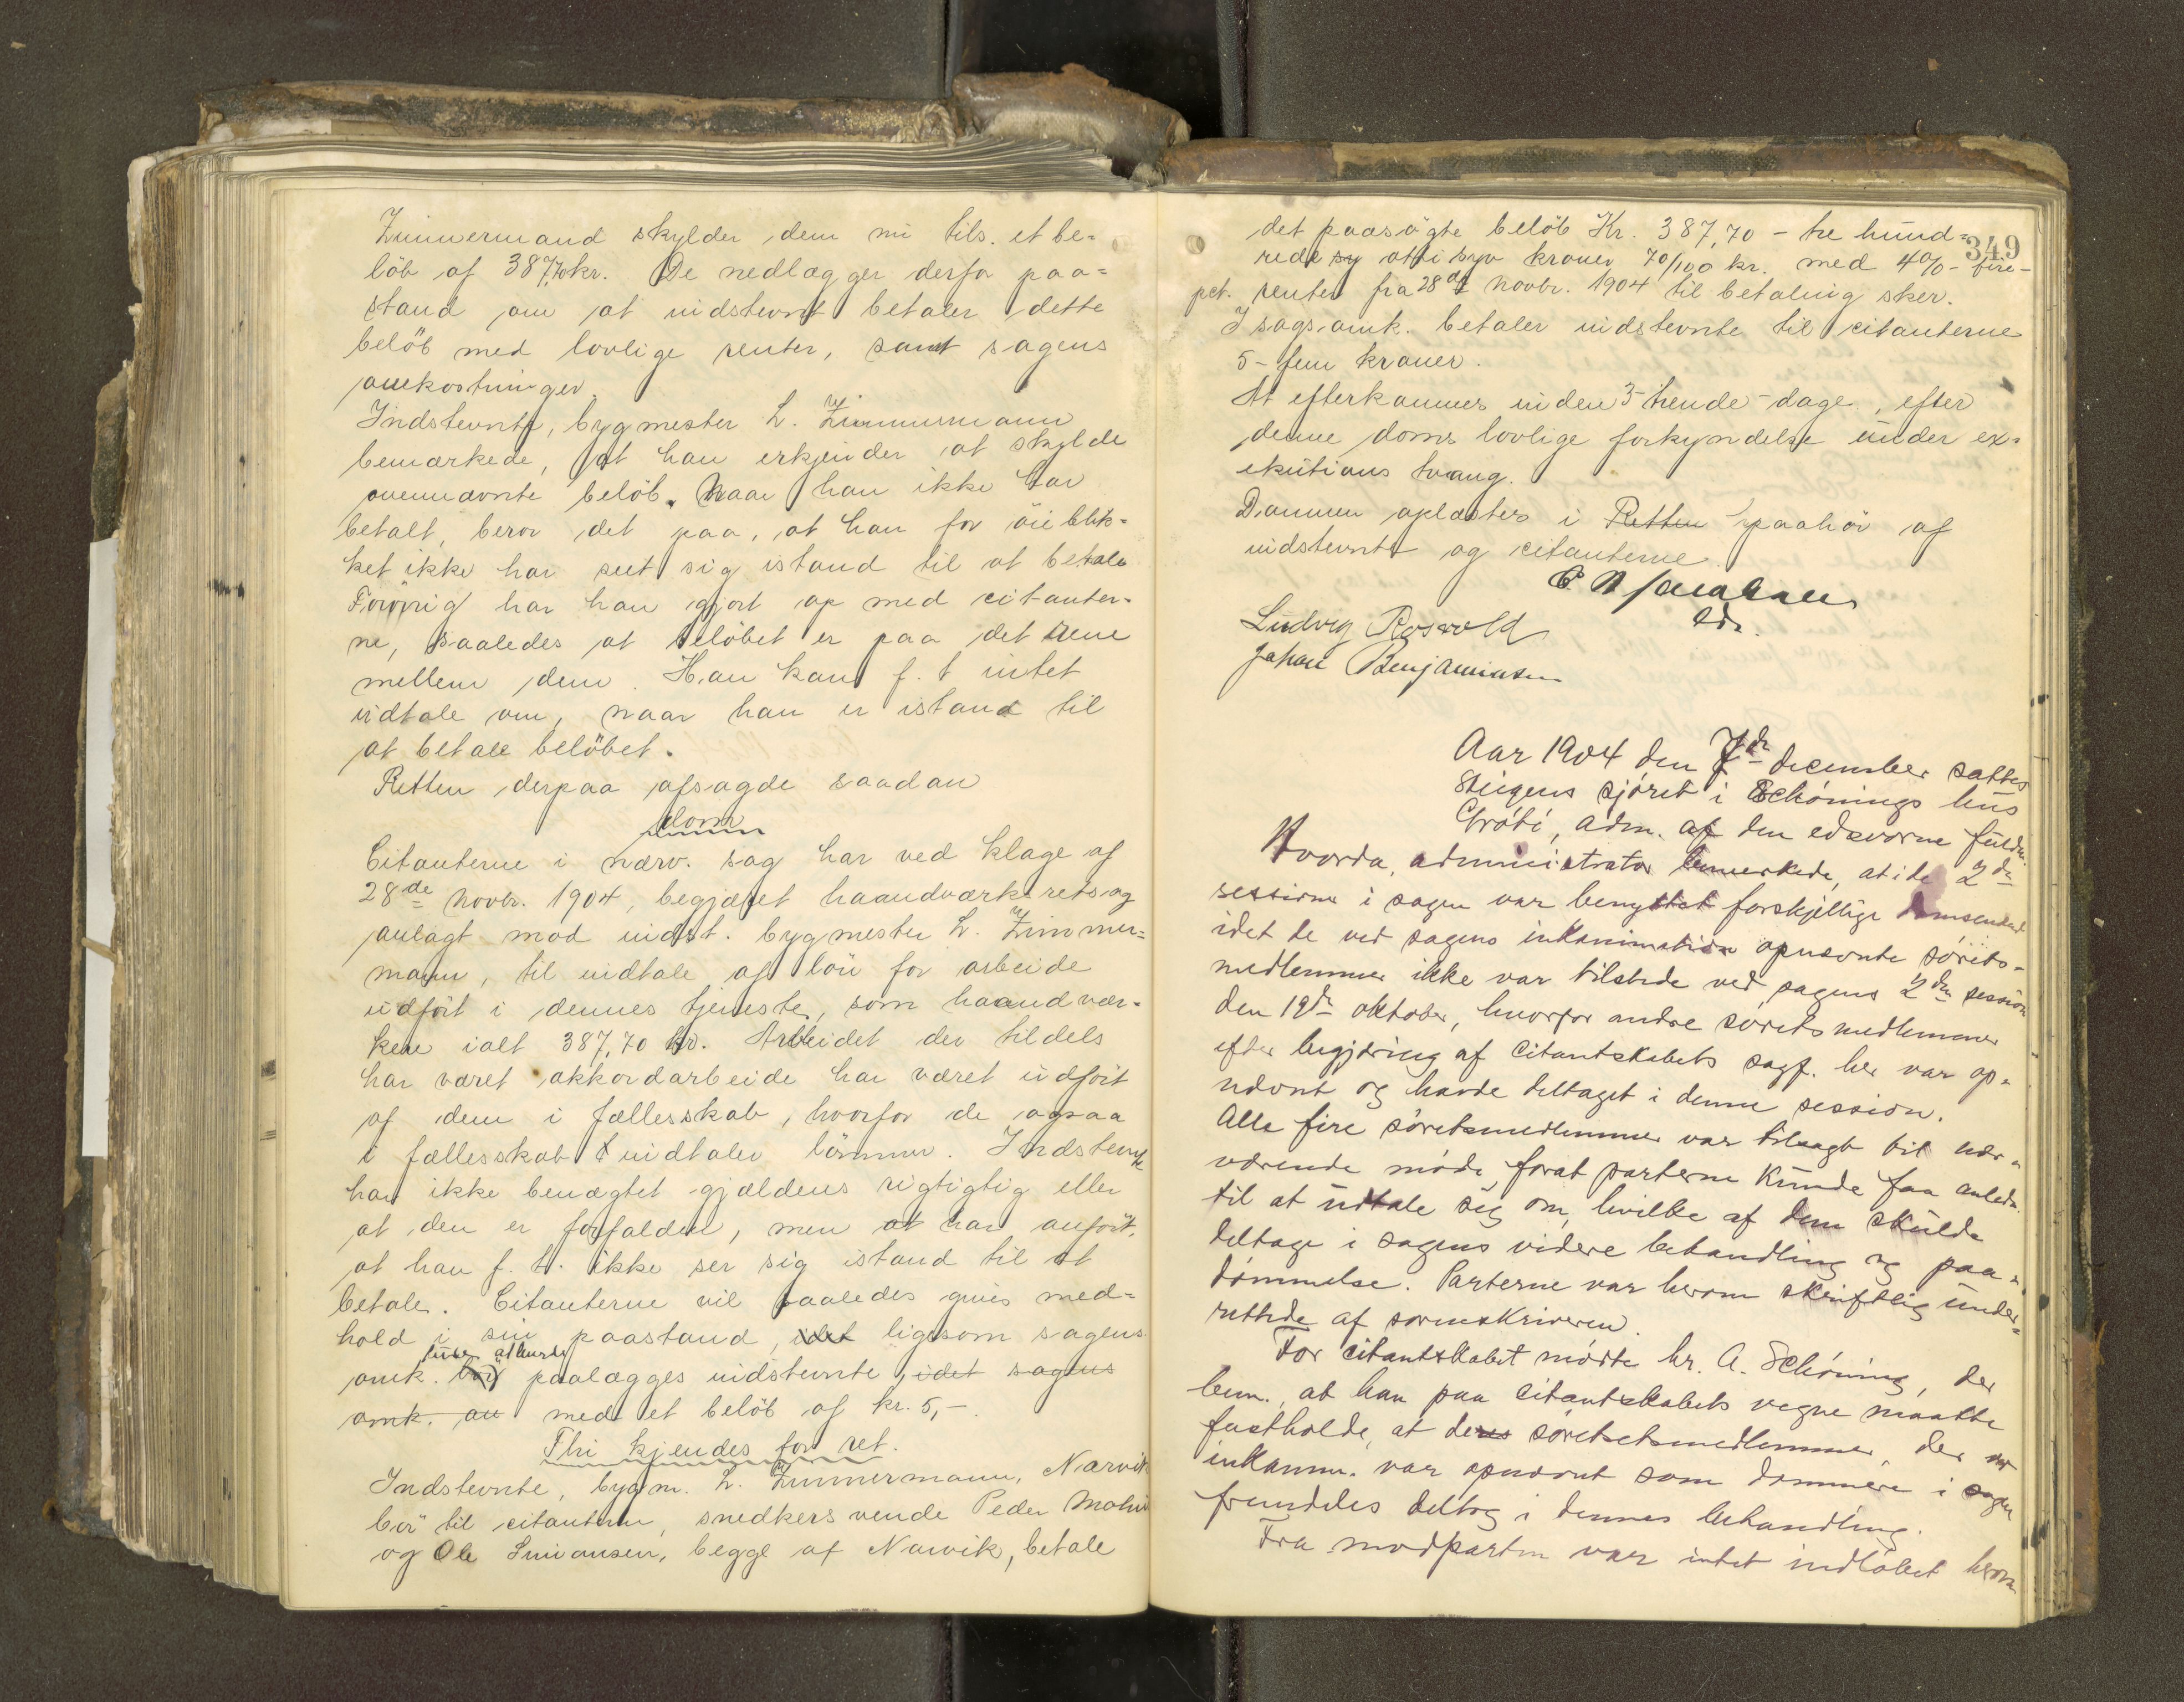 Zimmermand skylder dem nu tils. et be-
löb af 387,70 kr. De nedlægger derfor paa-
stand om at indstevnte betaler dette
belöb med lovlige renter, samt sagens
omkostninger.
Indstevnte, bygmester L. Zimmermann
bemærkede, at han erkjender at skylde
ovennævnte belöb. Naar han ikke har
betalt, beror det paa, at han for öieblik-
ket ikke har seet sig istand til at betale
Forövrig har han gjort op med citanter-
ne, saaledes at belöbet er paa det rene
mellem dem. Han kan f. t intet
udtale om, naar han er istand til
at betale belöbet.
Retten derpaa afsagde saadan
dom
Citanterne i nærv. sag har ved klage af
28de Novbr. 1904, begjæret haandværksretsag
anlagt mod indst. bygmester L. Zimmer-
mann, til indtale af lön for arbeide
udfört i dennes tjeneste, som haandvær-
kere ialt 387,70 kr. Arbeidet der tildels
har været akkordarbeide har været udfört
af dem i fællesskab, hvorfor de ogsaa
i fællesskab indtaler lönnen. Indstevnte
har ikke benægtet gjældens rigtigtig eller
at den er forfalden, men at har anfört,
at han f. t. ikke ser sig istand til at
betale. Citanterne vil saaledes gives med-
hold i sin paastand, idet ligesom sagens
omk. bör paalægges indstevnte, idet sagens
omk. an med et belöb af kr. 5,-.
Thi kjendes for ret.
Indstevnte, bygm. L. Zimmermann, Narvik
bör til citanterne, snedkersvende Peder
og Ole Simonsen, begge af Narvik, betale
349
det paasögte belöb Kr. 387,70 - tre hund-
rede sy otti syv kroner 70/100 kr. med 4% - fire -
pct. renter fra 28de Novbr. 1904 til betaling sker.
I sags omk. betaler indstevnte til citanterne
5 - fem kroner.
At efterkommes inden 3 - trende - dage, efter
denne doms lovlige forkyndelse under ex-
ekutions tvang.
Dommen oplæstes i Retten paahör af
indstevnte og citanterne.
edv.
Ludvig Rosvold
Johan Benjaminsen
Aar 1904 den 7de december sattes
Steigens sjöret i Schönings hus
Gröti, adm. af den edsvorne fuldm.
Hvorda, administrator bemerkede, at i de 2de
sessioner i sagen var benyttet forskjellige domsmænd
idet de ved sagens inkamination opnævnte sörets-
medlemmer ikke var tilstede ved sagens 2den session
den 19de oktober, hvorfor andre söretsmedlemmer
efter begjæring af Citantskabets sagf. her var op-
nævnt og havde deltaget i denne session.
Alle fire söretsmedlemmer var tilsagt til nær-
værende möde, forat parterne kunde faa anledn.
til at udtale sig om, hvilke af dem skulde
deltage i sagens videre behandling og paa-
dömmelse. Parterne var herom skriftlig under-
rettede af sorenskriveren.
For citantskabet mödte hr. A. Schöning, der
bem., at han paa Citantskabets vegne maatte
fastholde, at de söretsmedlemmer, der ved
inkamm. var opnævnt som dommere i sagen
fremdeles deltog i dennes behandling.
Fra modparten var intet indlöbet herom